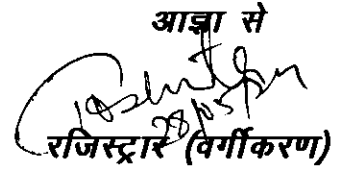 आज्ञा से
28/05/
रजिस्ट्रार (वर्गीकरण)